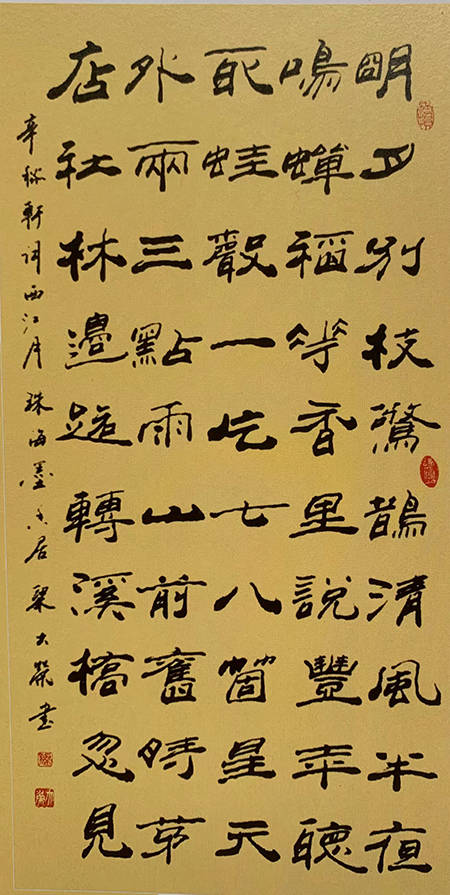 明月別枝驚鵲清風半夜
鳴蟬稻花香里說豐年聽
取蛙聲一片七八箇星天
外兩三點雨山前舊時茅
店社林邊路轉溪橋忽見
辛稼軒詞西江月珠海墨居梁大榮書